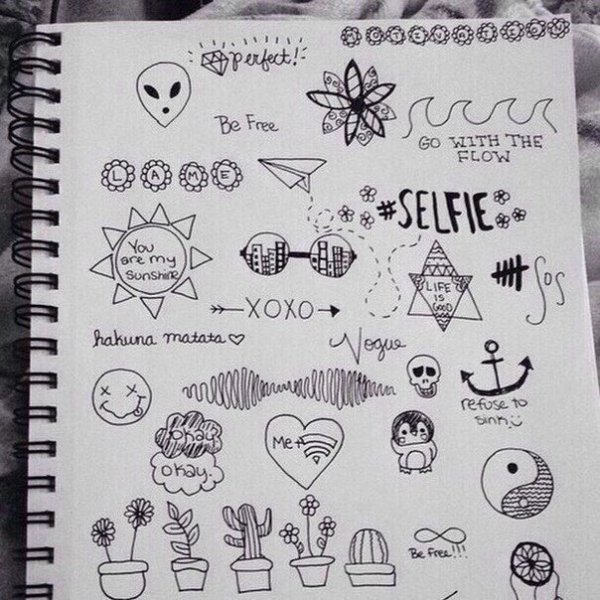 perfect!
MOTIVATION
Be Free
GO WITH THE
FLOW
LAME
#SELFIE
You
are my
sunshine
LIFE
IS
GOOD
SOS
XOXO
hakuna matata
Vogue
refuse to
sink
okay
okay.
Me+
Be free!!!